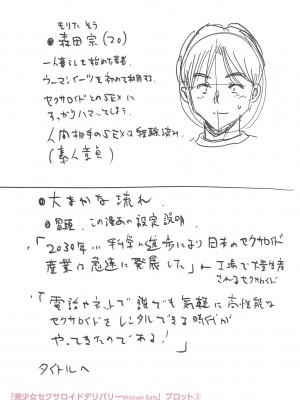 もりた そう
●森田宗(20)
一人暮らしを始めた若者。
ウーマンイーツを初めて利用する。
セクサロイドとのSEXに
すっかりハマってしまう。
人間相手のSEXは経験ない。
(素人童貞)
●大まかな流れ。
●冒頭、この漫画の設定説明。
「2030年…科学の進歩により日本のセクサロイド
産業は急速に発展した」←工場で大量生産
されるセクサロイド
「電話やネットで誰でも気軽に高性能な
セクサロイドをレンタルできる時代が
やってきたのである！
タイトルへ
「美少女セクサロイドデリバリーWoman Eats」プロット②